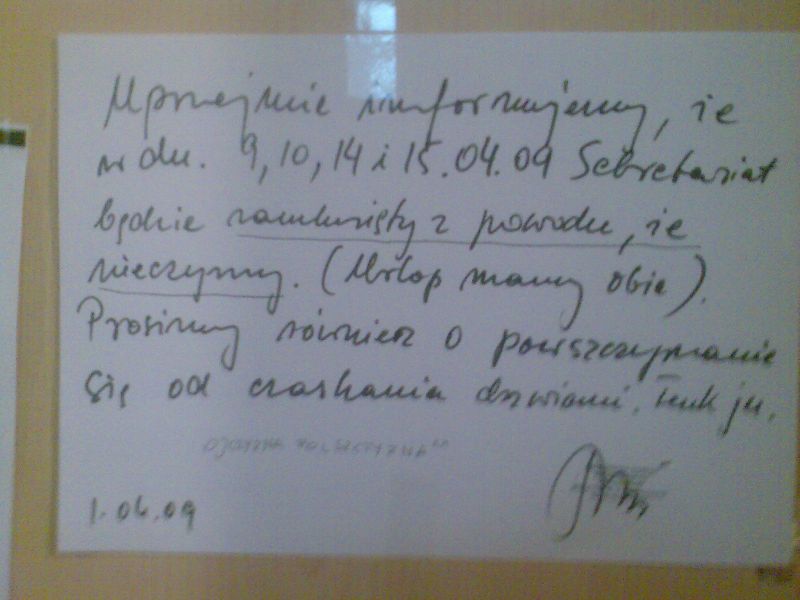 Uprzejmie informujemy, że
w dn. 9, 10, 14 i 15.04.09 Sekretariat
będzie zamknięty z powodu, że
nieczynny. (Urlop mamy obie).
Prosimy również o powszczymanie
się od czaskania dzwiami. Tenk ju.
OJCZYZNA POLSZCZYZNA
1.04.09